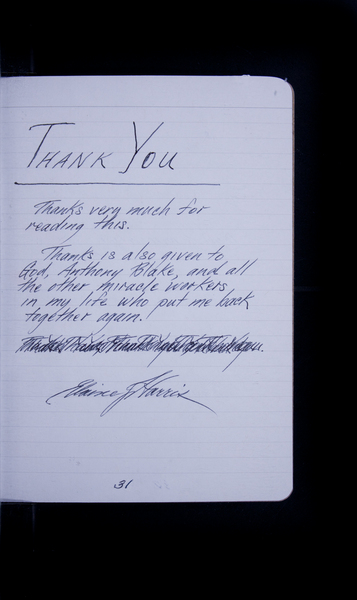 THANK YOU
Thanks very much for
reading this.
Thanks is also given to
God, Anthony Blake, and all
the other miracle workers,
in my life who put me back
together again.
Elaine J Harris
31